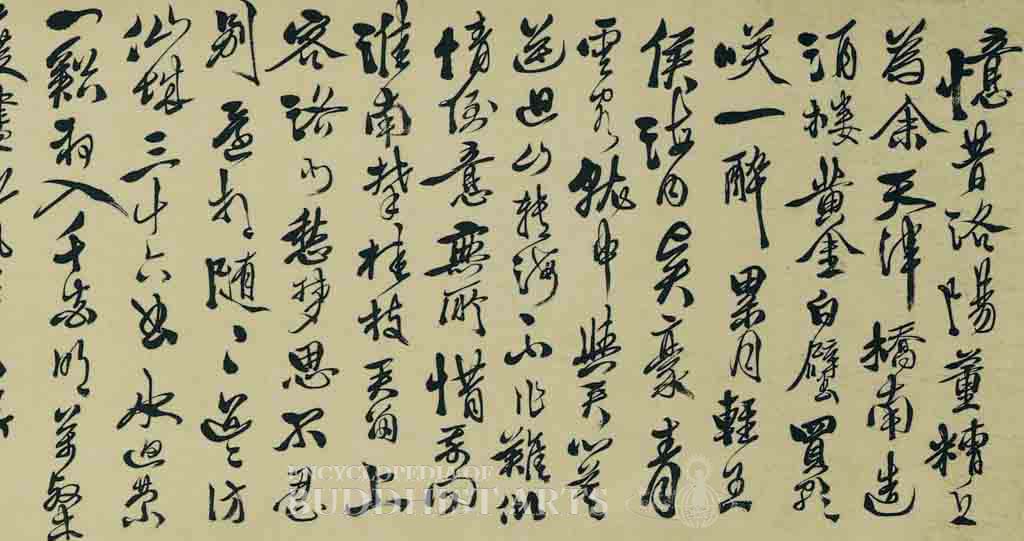 憶昔洛陽董糟丘
為余天津橋南造
酒樓黃金白璧買歌
咲一醉累月輕王
侯海内賢豪青
雲客就中與君心莫
逆迴山轉海不作難傾
情倒意無所惜我向
淮南攀桂枝君留
客洛北愁夢思不忍
別還相隨〻迢〻訪
仙城三十六曲水迴縈
一谿初入千花明萬壑
度盡松風
ENCYCLOPEDIA OF
BUDDHIST ARTS